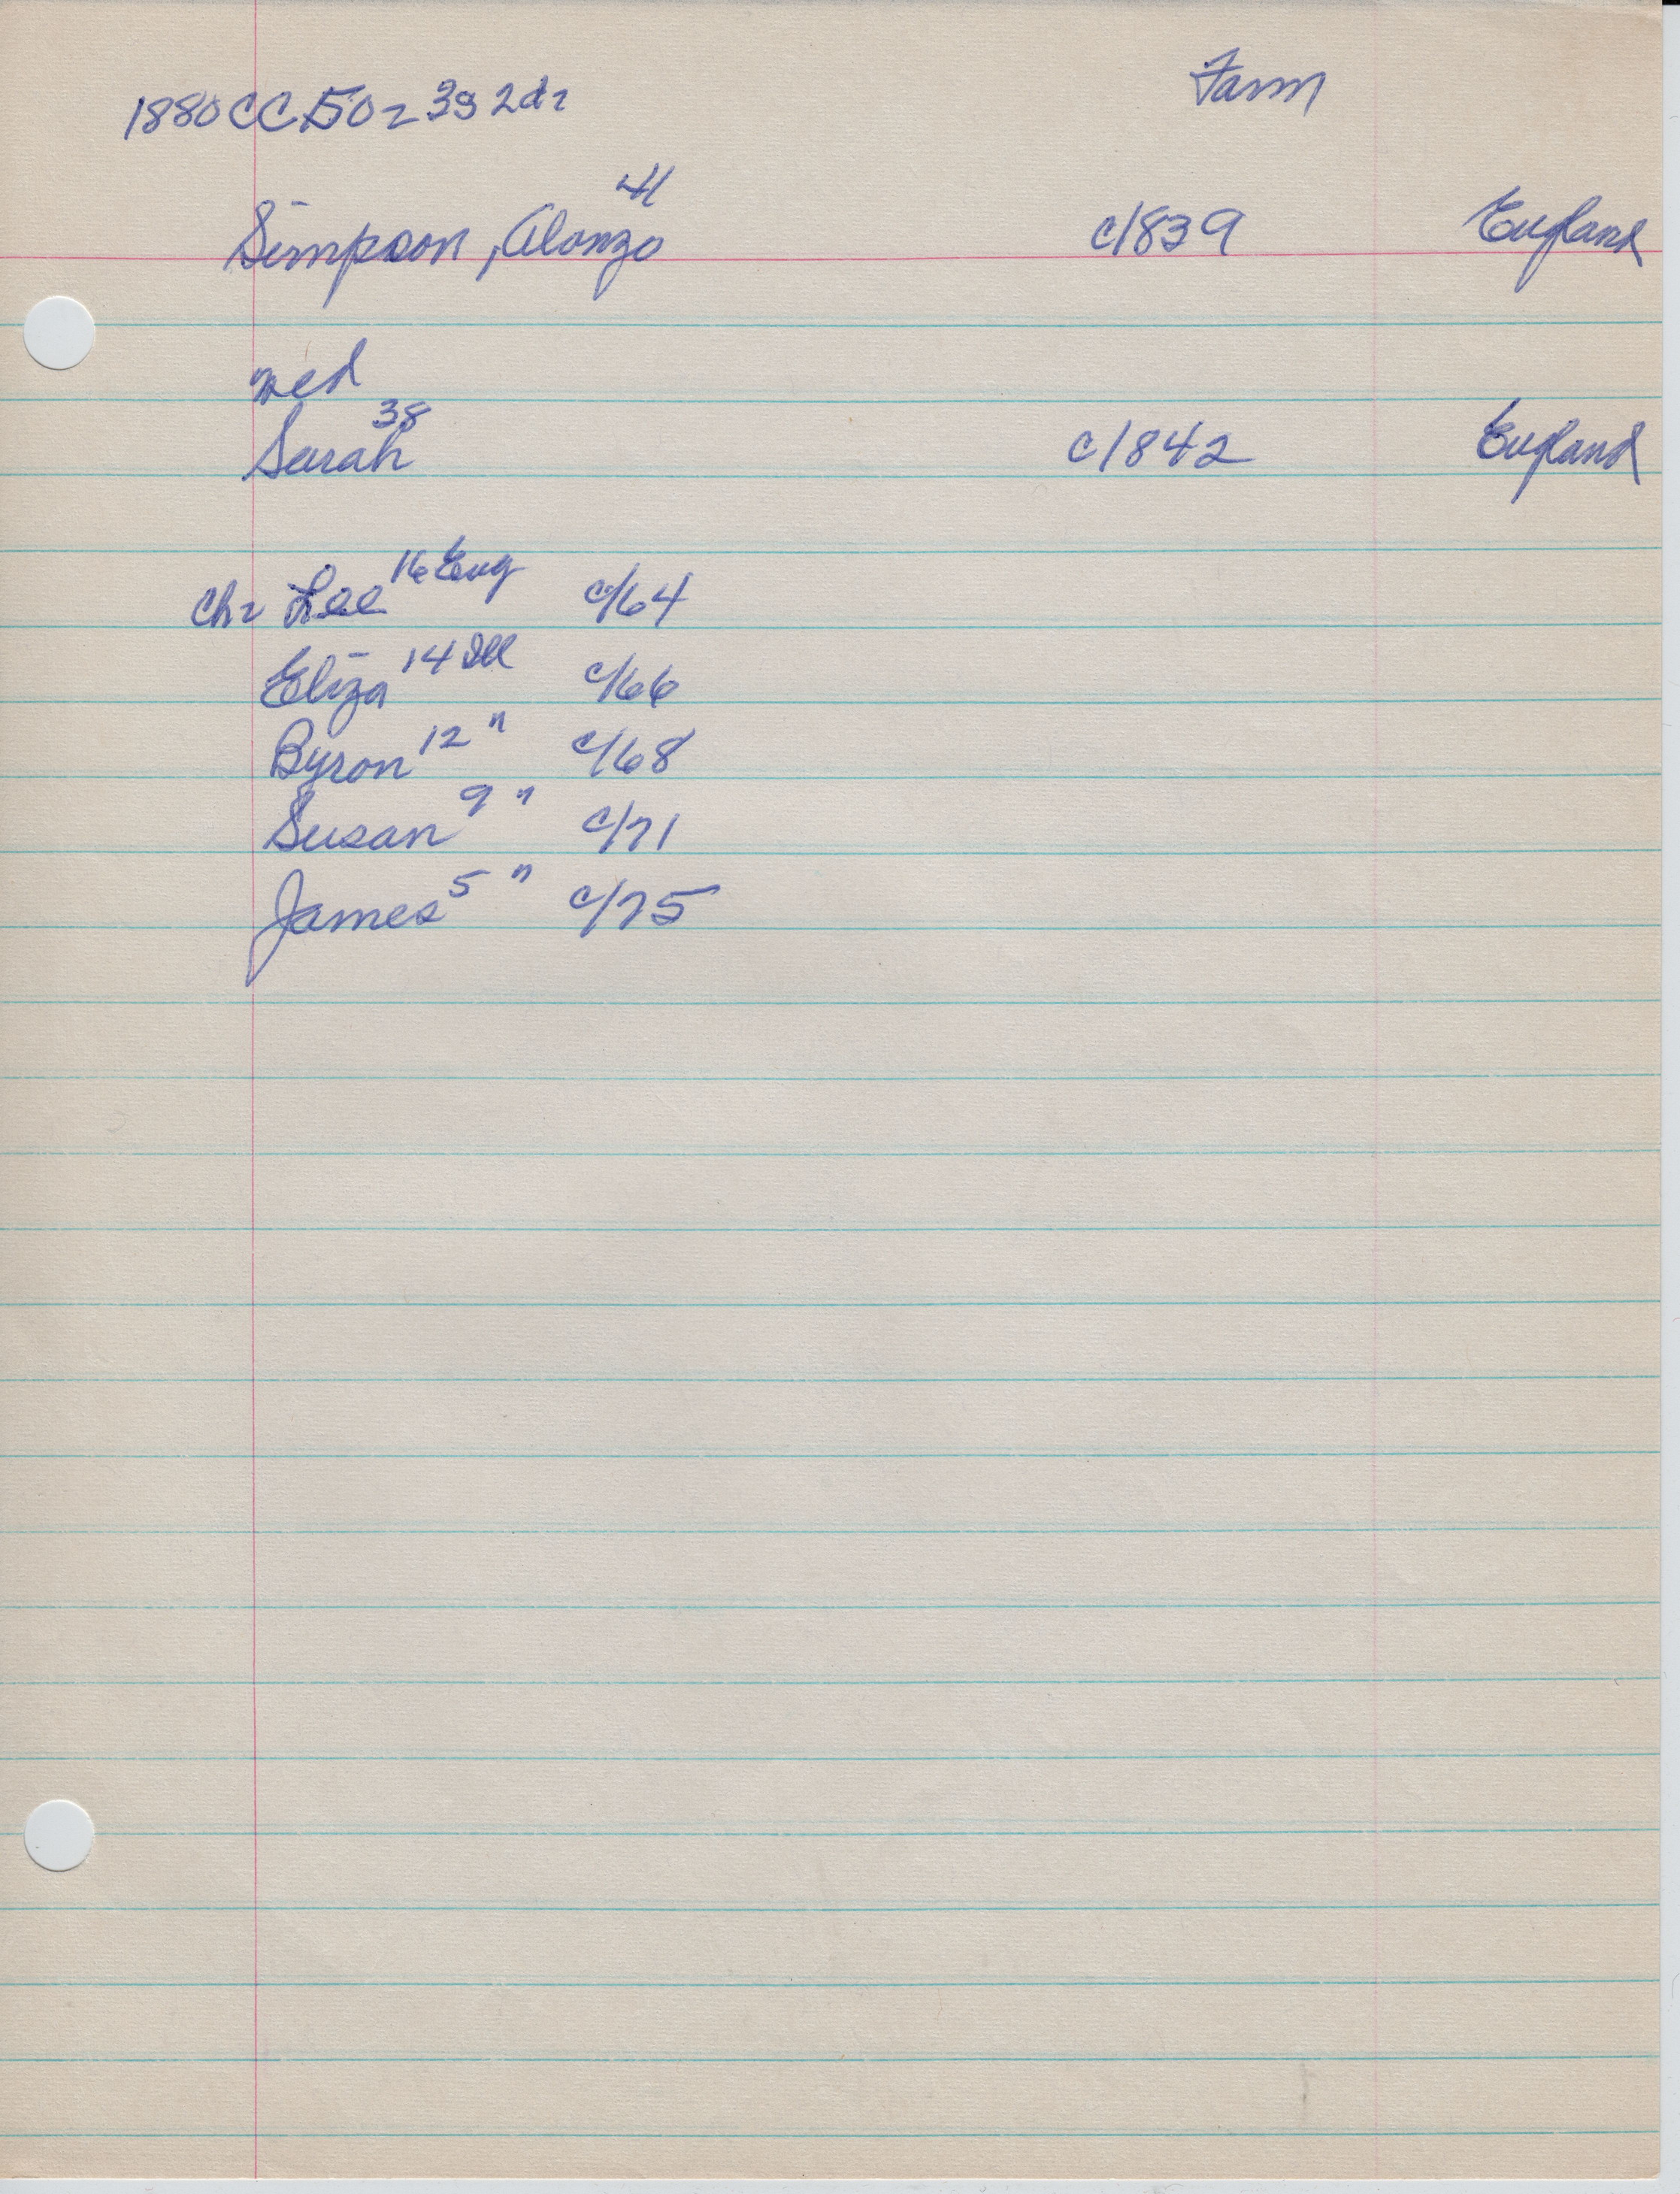 1880 CC 50 = 3s 2d= Farm
41
Simpson, Alonzo c/839 England
med
38
Sarah c/842 England
ch= Lee 16 Eng c/64
Eliza 14 Ill c/66
Byron 12 " c/68
Susan 9 " c/71
James 5 " c/75